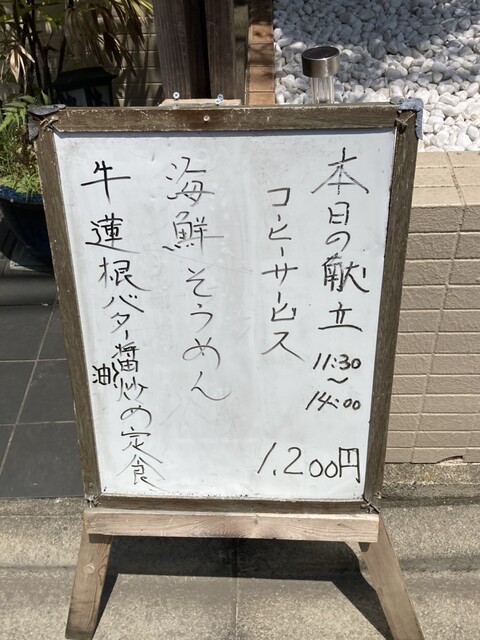 本日の献立
11:30
〜
14:00
コーヒーサービス
1,200円
海鮮そうめん
牛蓮根バター醤油炒め定食